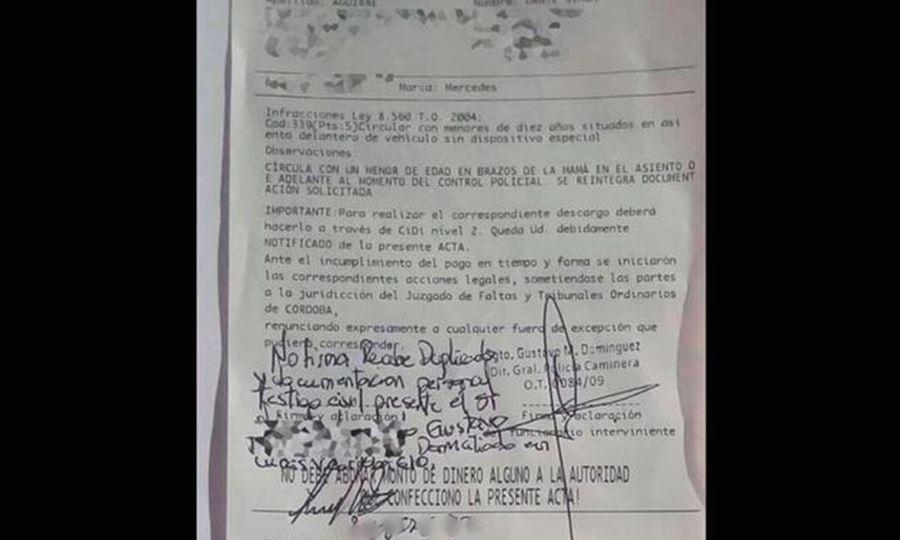 Apellido: AGUIRRE Nombre: DANTE
Marca: Mercedes
Infracciones Ley 8.560 T.O. 2004:
Cod:339(Pts:5)Circular con menores de diez años situados en asi
ento delantero de vehículo sin dispositivo especial
Observaciones:
CIRCULA CON UN MENOR DE EDAD EN BRAZOS DE LA MAMÁ EN EL ASIENTO D
E ADELANTE AL MOMENTO DEL CONTROL POLICIAL. SE REINTEGRA DOCUMENT
ACIÓN SOLICITADA
IMPORTANTE:Para realizar el correspondiente descargo deberá
hacerlo a través de CiDi nivel 2. Queda Ud. debidamente
NOTIFICADO de la presente ACTA.
Ante el incumplimiento del pago en tiempo y forma se iniciarán
las correspondientes acciones legales, sometiendose las partes
a la juridicción del Juzgado de Faltas y Tribunales Ordinarios
de CORDOBA,
renunciando expresamente a cualquier fuero de excepción que
pudiera corresponder.
Recibe Duplicado
y documentacion personal
testigo civil presente el
Gustavo
Sgto. Gustavo M. Dominguez
Dir. Gral. Policía Caminera
O.T. 0084/09
Firma y aclaración
Firma y aclaración
funcionario interviniente
NO DEBE ABONAR MONTO DE DINERO ALGUNO A LA AUTORIDAD
CONFECCIONO LA PRESENTE ACTA!